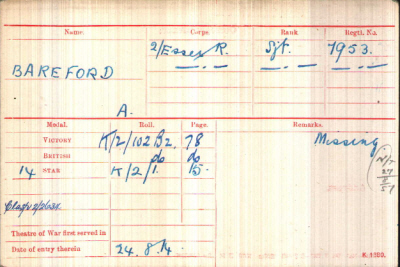 Name. Corps. Rank Regtl. No.
2/Essex R. Sjt. 7953.
BAREFORD
A.
Medal. Roll. Page. Remarks.
VICTORY K/2/102 B2. 78 Missing
BRITISH do do
14 STAR K/2/1. 15.
Theatre of War first served in
Date of entry therein 24.8.14.
K. 1380.